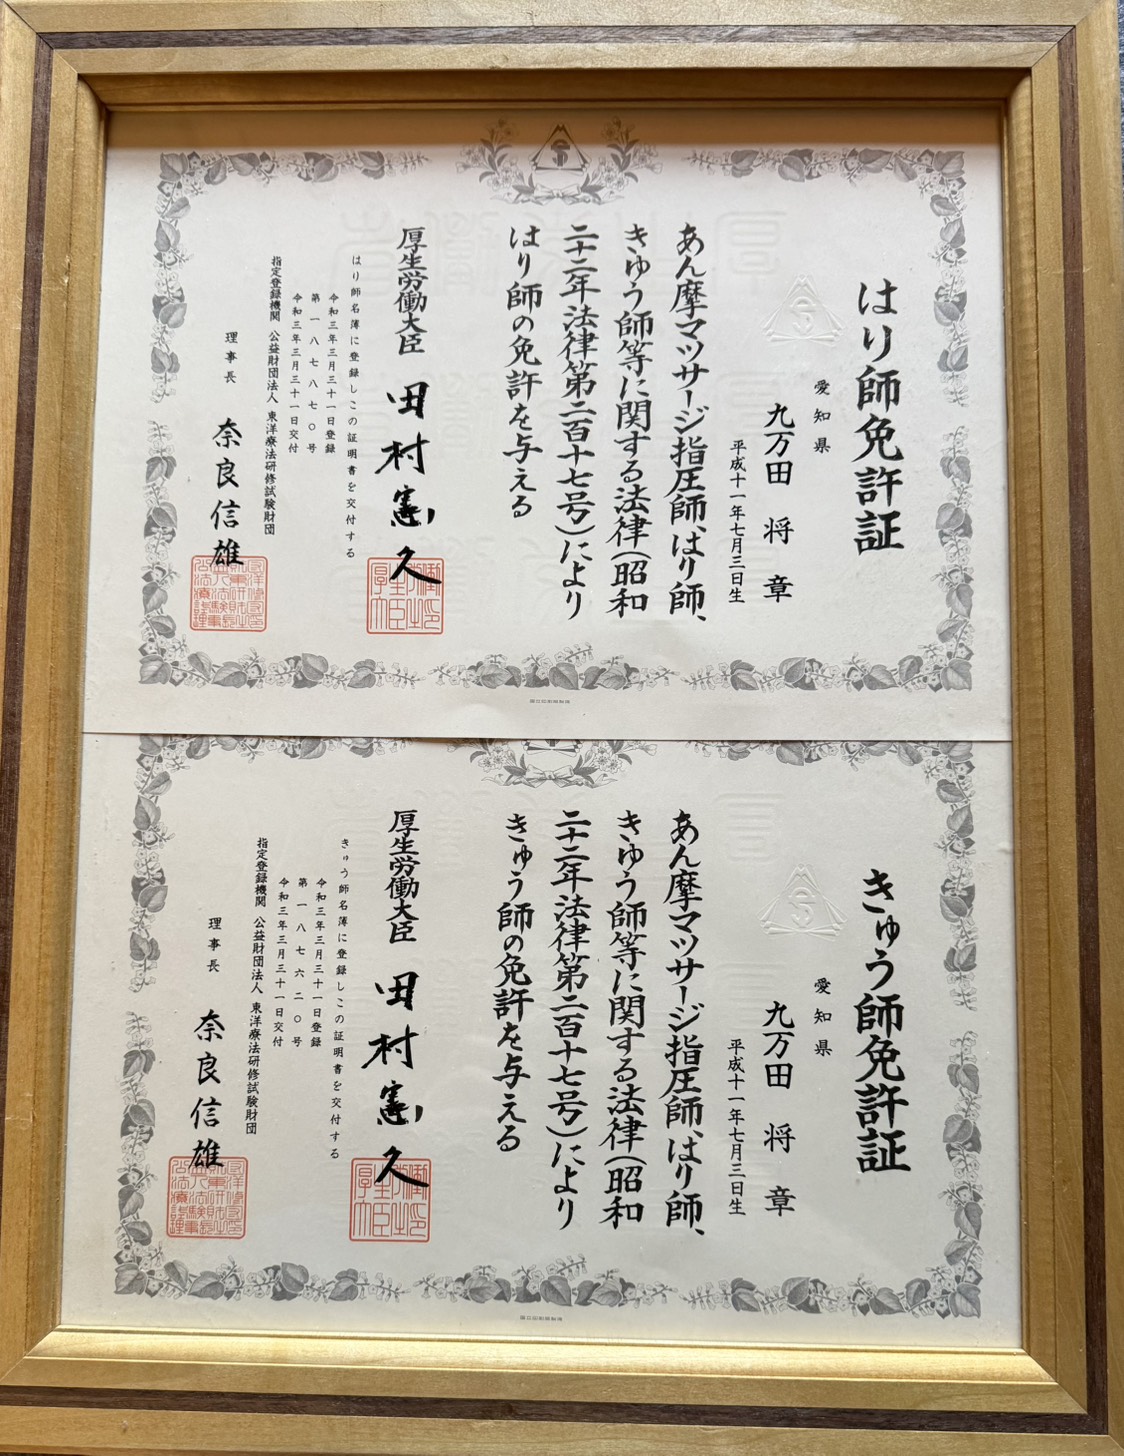 はり師免許証
愛知県
九万田 将章
平成十一年七月三日生
あん摩マツサージ指圧師、はり師、
きゆう師等に関する法律（昭和
二十二年法律第二百十七号）により
はり師の免許を与える
厚生労働大臣 田村憲久
はり師名簿に登録しこの証明書を交付する
令和三年三月三十一日登録
第一八七八七〇号
令和三年三月三十一日交付
指定登録機関 公益財団法人 東洋療法研修試験財団
理事長 奈良信雄
きゅう師免許証
愛知県
九万田 将章
平成十一年七月三日生
あん摩マツサージ指圧師、はり師、
きゆう師等に関する法律（昭和
二十二年法律第二百十七号）により
きゅう師の免許を与える
厚生労働大臣 田村憲久
きゅう師名簿に登録しこの証明書を交付する
令和三年三月三十一日登録
第一八七六二〇号
令和三年三月三十一日交付
指定登録機関 公益財団法人 東洋療法研修試験財団
理事長 奈良信雄